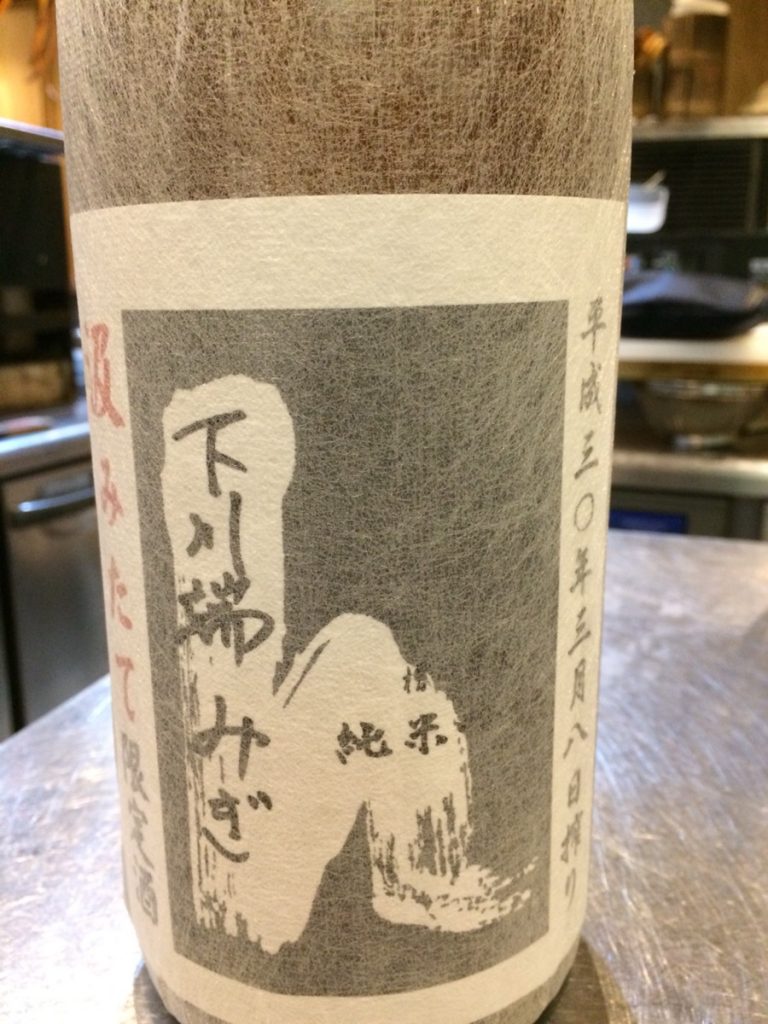 平成三〇年三月八日搾り
純米
下川端
みぎし
汲みたて限定酒